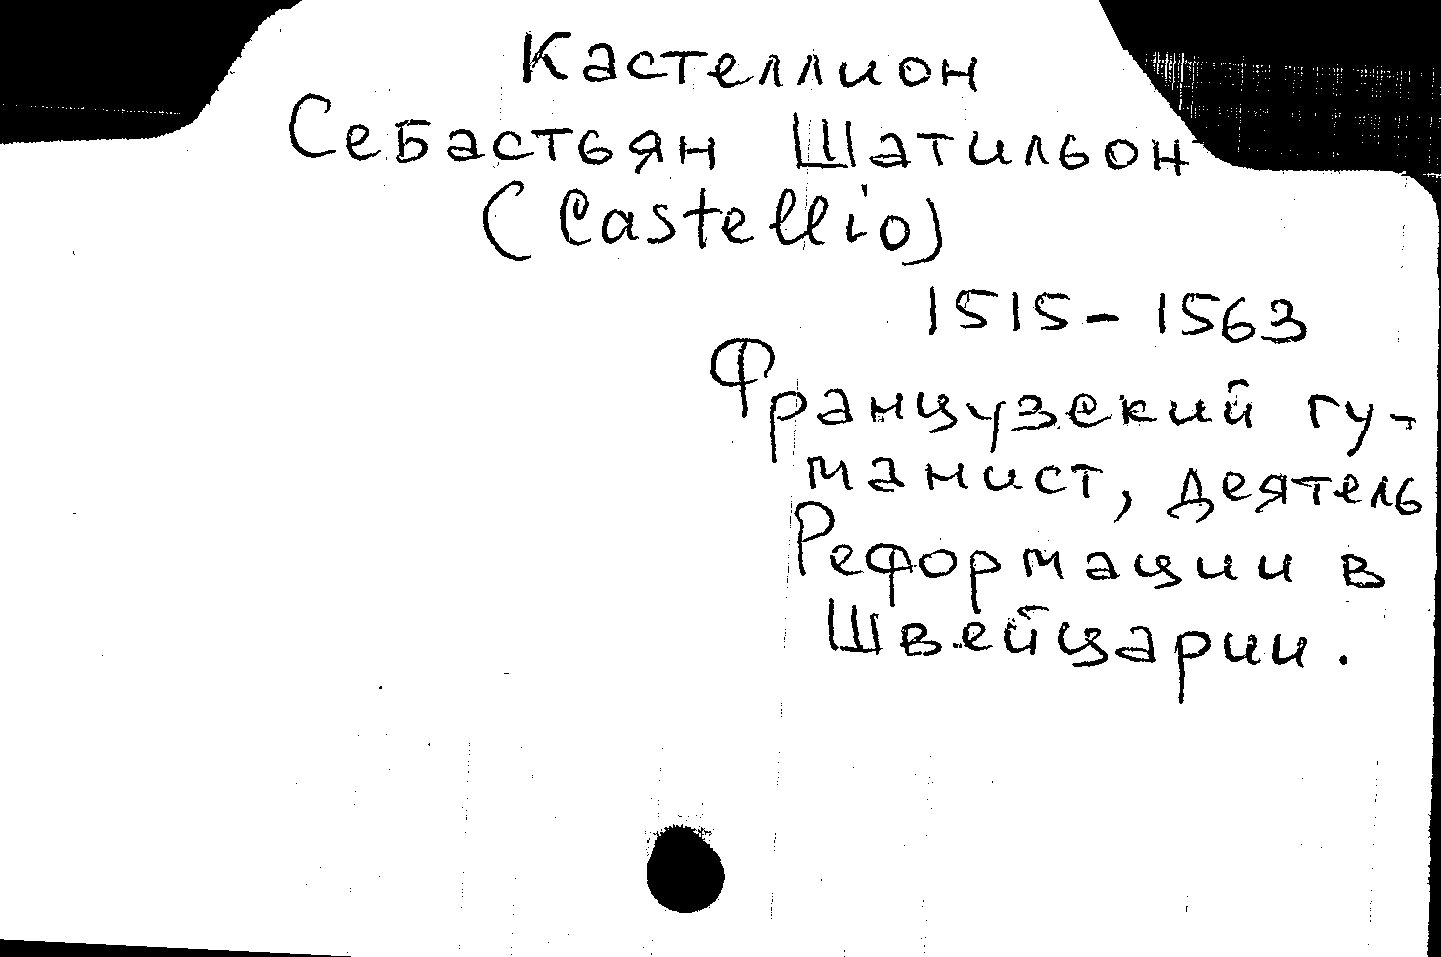 Кастеллион
Себастьян Шатильон
(Castellio)
1515-1563
Французский гу-
манист, деятель
Реформации в
Швейцарии.